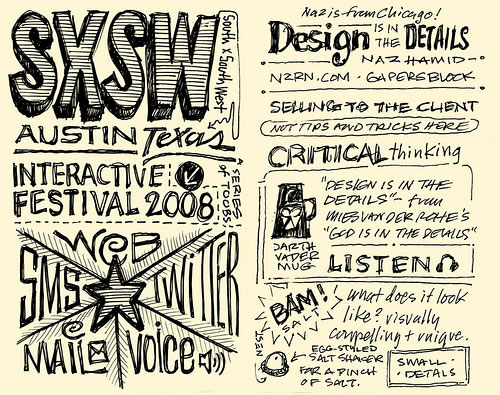 SXSW
South x South West
AUSTIN Texas
INTERACTIVE
FESTIVAL 2008
SERIES
of 7 BOOBS
WEB
SMS
TWITTER
e
MAIL
VOICE
Naz is from Chicago!
Design IS IN THE DETAILS
NAZ HAMID
NZRN.COM · GAPERSBLOCK
SELLING TO THE CLIENT
NOT TIPS AND TRICKS HERE
CRITICAL thinking
"DESIGN IS IN THE
DETAILS" - from
MIES VAN DER ROHE'S
"GOD IS IN THE DETAILS"
DARTH
VADER
MUG
LISTEN
BAM!
SALT
what does it look
like? visually
compelling + unique.
EGG-STYLED
SALT SHAKER
FOR A PINCH
OF SALT.
SMALL
DETAILS